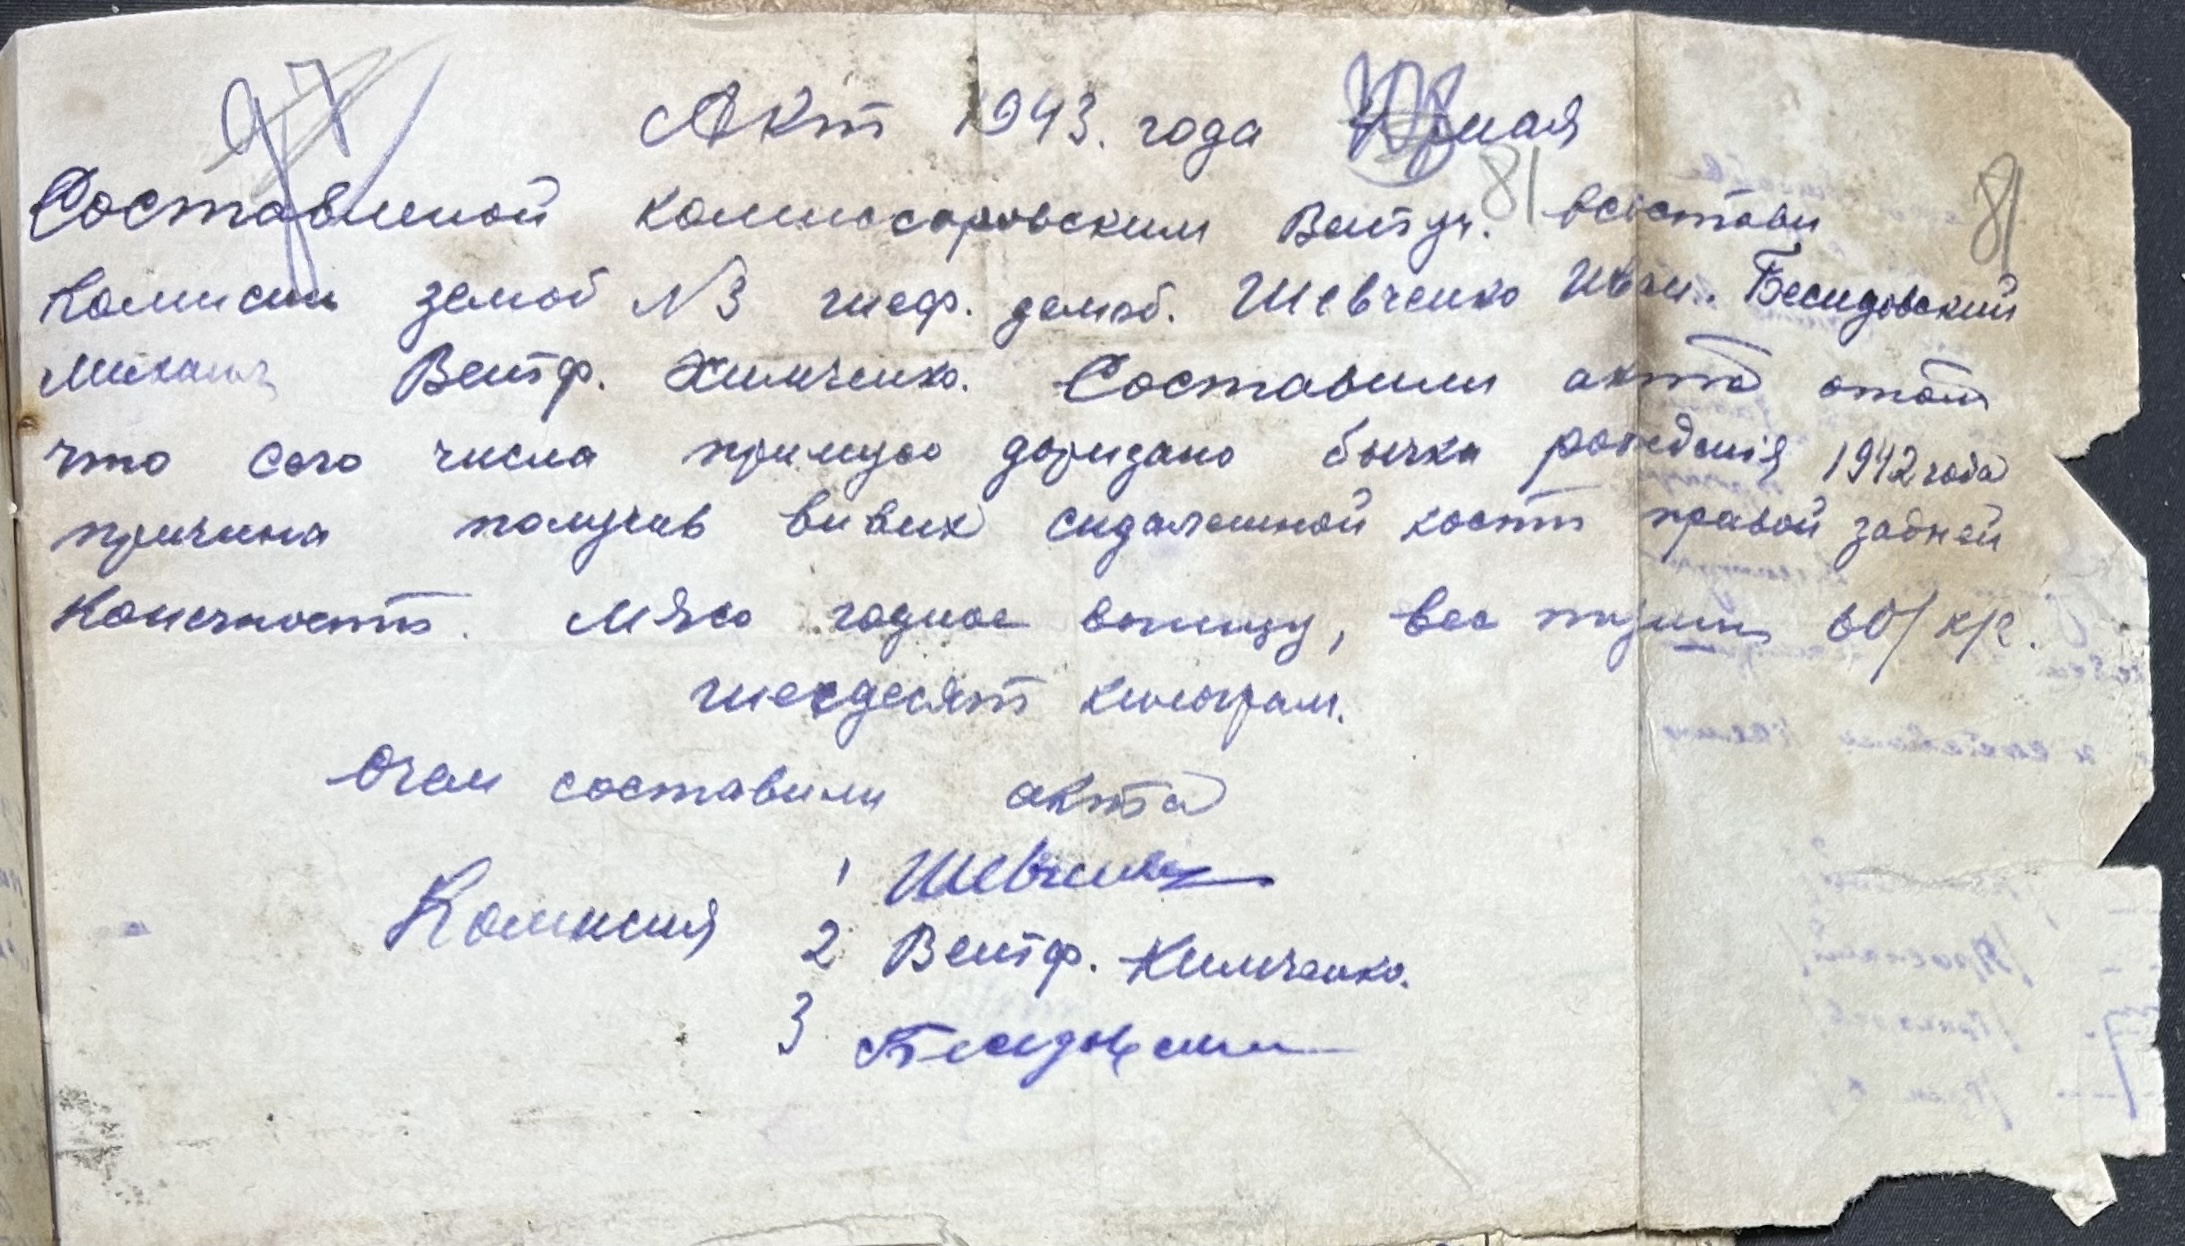 97
Акт 1943. года мая
81 81
Составленой комиссаровским Ветуч. всоставе
Комисии земоб №3 шеф. Шевченко Иван. Бесидовский
Михаил Ветф. Химченко. Составили акта отом
что сего числа примусо доризано бычка рождения 1942 года
причина получив вивих сидалешной кости правой задней
Конечности. Мясо годное впищу, вес 60/ к/г.
шесдесят килограм.
Очем составили акта
Комисия 1 Шевченко
2 Ветф. Химченко.
3 Бесидовский